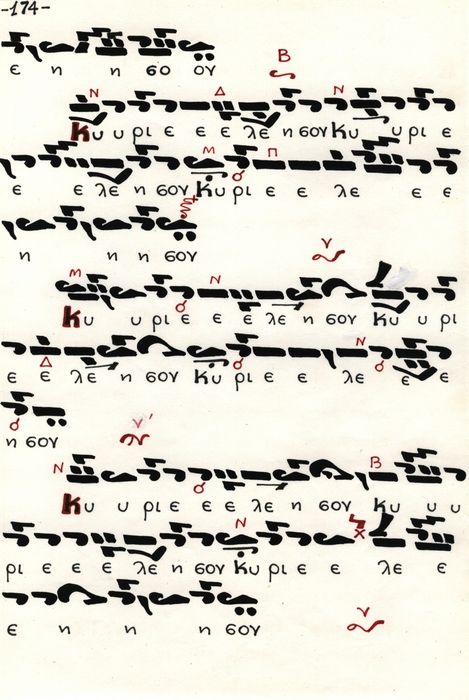 -174-
ε η η σο ού
Β
Ν Δ Ν
Κυ υ ρι ε ε ε λε η σον Κυ υ ρι ε
Μ Π
ε ε λε η σον Κυ ρι ε ε λε ε ε
η η η σον
ν
Μ Ν
Κυ υ ρι ε ε ε λε η σον Κυ υ ρι
Δ Ν
ε ε λε η σον Κυ ρι ε ε λε ε ε
η σον
ν'
Ν Β
Κυ υ ρι ε ε ε λε η σον Κυ υ υ
Ν χ
ρι ε ε ε λε η σον Κυ ρι ε ε λε ε
ε η η η σον
ν